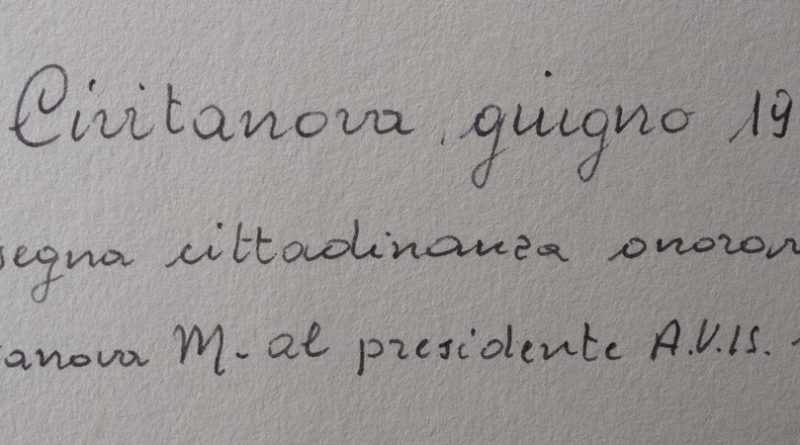 Civitanova, giugno 19
segna cittadinanza onorar
anova M. al presidente A.V.IS.